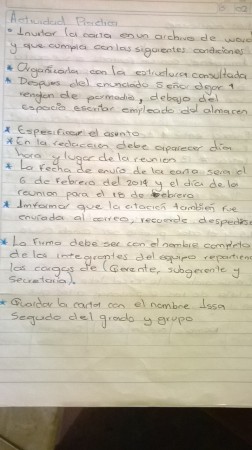 Actividad Practica
* Invitar la carta en un archivo de word
y que cumpla con las siguientes condiciones
* Organizarla con la estructura consultada
* Despues del enunciado Señor dejar 1
renglon de por medio, debajo del
espacio escribir empleado del almacen
* Especificar el asunto
* En la redaccion debe aparecer dia
hora y lugar de la reunion
* La fecha de envio de la carta sera el
6 de febrero del 2019 y el dia de la
reunion para el 18 de febrero
* Informar que la citacion tambien fue
enviada al correo, recuerde despedirse
* La Firma debe ser con el nombre completo
de los integrantes del equipo repartiendo
los cargos de (Gerente, subgerente y
Secretaria).
* Guardar la carta con el nombre
Seguido del grado y grupo